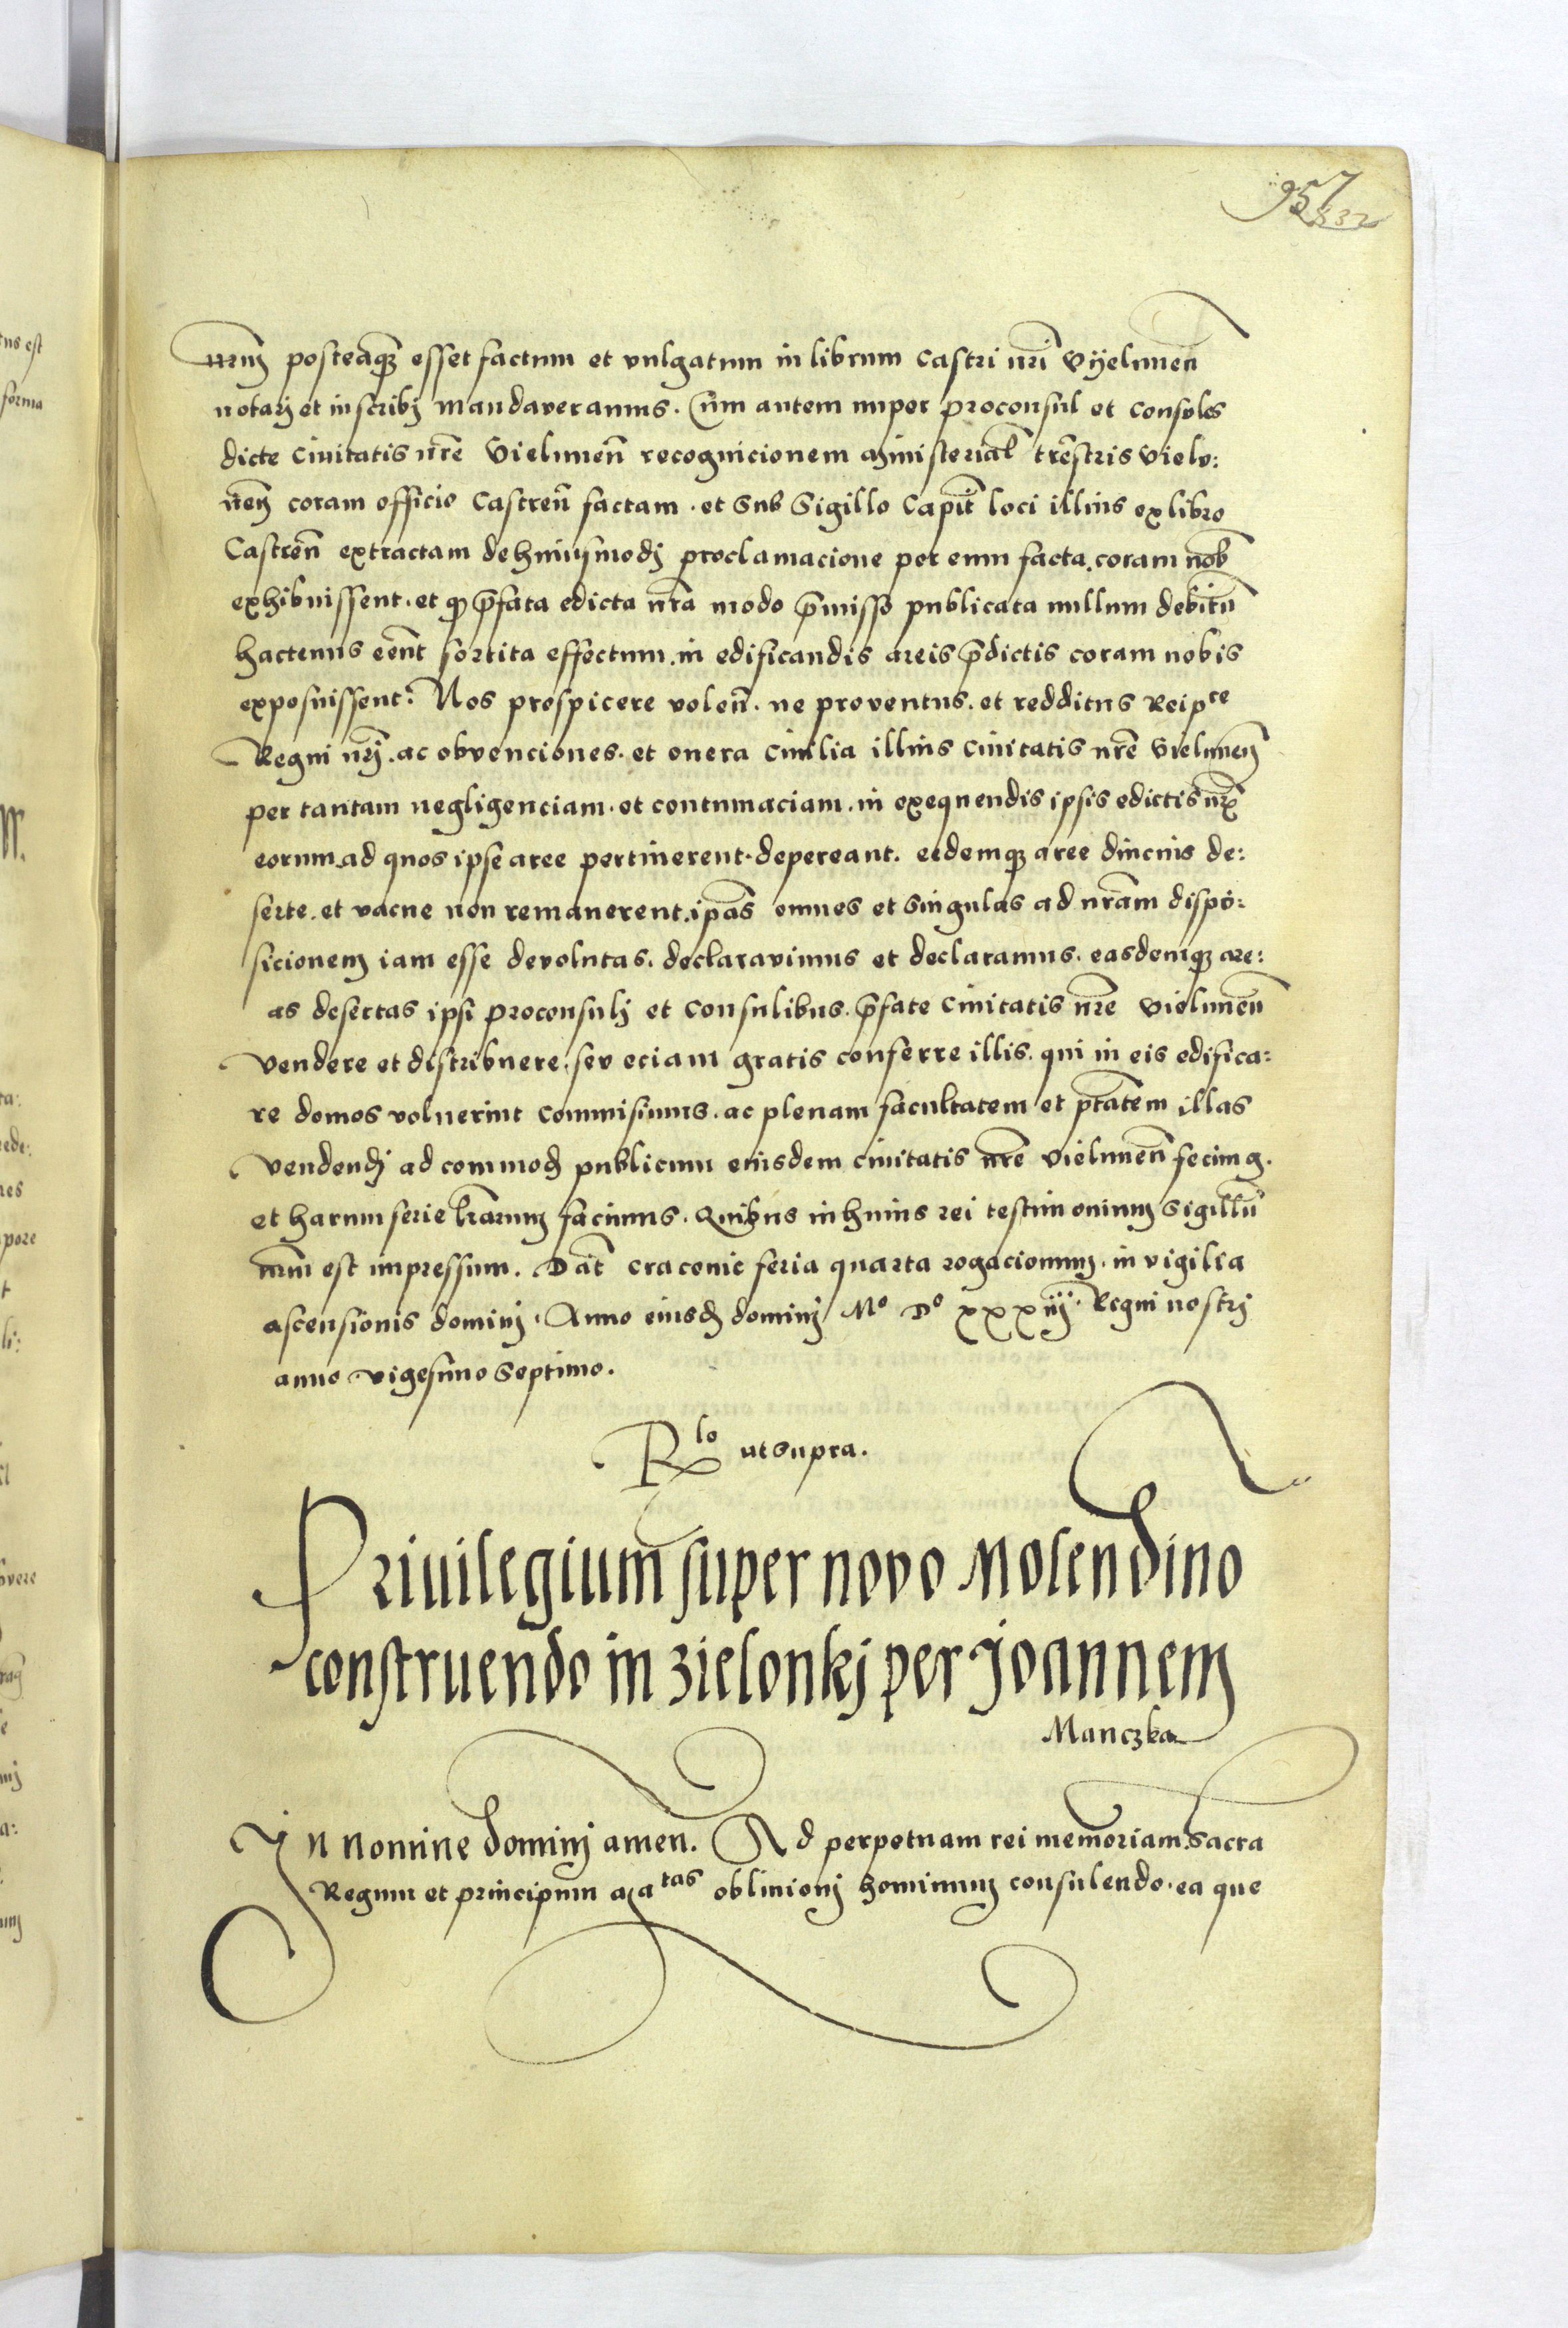 957
332
nrm̄ posteaq̄ʒ esset factum et vulgatum in librum castri nrī Vyelunen̄
notarj et inscribj mandaveramus. Cum autem nuper proconsul et consules
dicte civitatis nrē Vielunen̄ recognicionem ministerial̄ trēstris vielu:
nen̄ coram officio Castren̄ factam. et sub Sigillo Capit̄ loci illius ex libro
Castren̄ extractam de huiusmodj proclamacione per eum facta. coram nob̄
exhibuissent. et q̄ p̄fata edicta nrā modo p̄misso publicata nullum debitū
hactenus eēnt sortita effectum. in edificandis areis p̄dictis coram nobis
exposuissent: Nos prospicere volen̄. ne proventus. et redditus Reipce
Regni nrj̄. ac obvenciones. et onera civilia illius civitatis nrē vielunen̄
per tantam negligenciam. et contumaciam. in exequendis ipsis edictis nrīs
eorum ad quos ipse aree pertinerent. depereant. eedemqʒ aree diucius de:
serte. et vacue non remanerent. ipās omnes et singulas ad nrām dispo:
sicionem iam esse devolutas. declaravimus et declaramus. easdemqʒ are:
as desertas ipsi proconsulj et consulibus. p̄fate civitatis nrē vielunen̄
vendere et distribuere. seu eciam gratis conferre illis. qui in eis edifica:
re domos voluerint commisimus. ac plenam facultatem et ptātem illas
vendendj ad commod̄ publicum eiusdem civitatis nrē vielunen̄ fecimꝰ.
et harum serie lrārum facimus. Quibus in huius rei testimonium Sigillū
nrm̄ est impressum. Dat̄ cracovie feria quarta rogacionum. in vigilia
ascensionis dominj. Anno eiusd̄ dominj Mo Do xxxiij. Regni nostrj
anno vigesimo septimo.
Rlo ut supra.
Privilegium super novo Molendino
construendo in zielonkj per Joannem
Manczka
In nomine dominj amen. Ad perpetuam rei memoriam. Sacra
Regum et principum matas oblivionj hominum consulendo. ea que